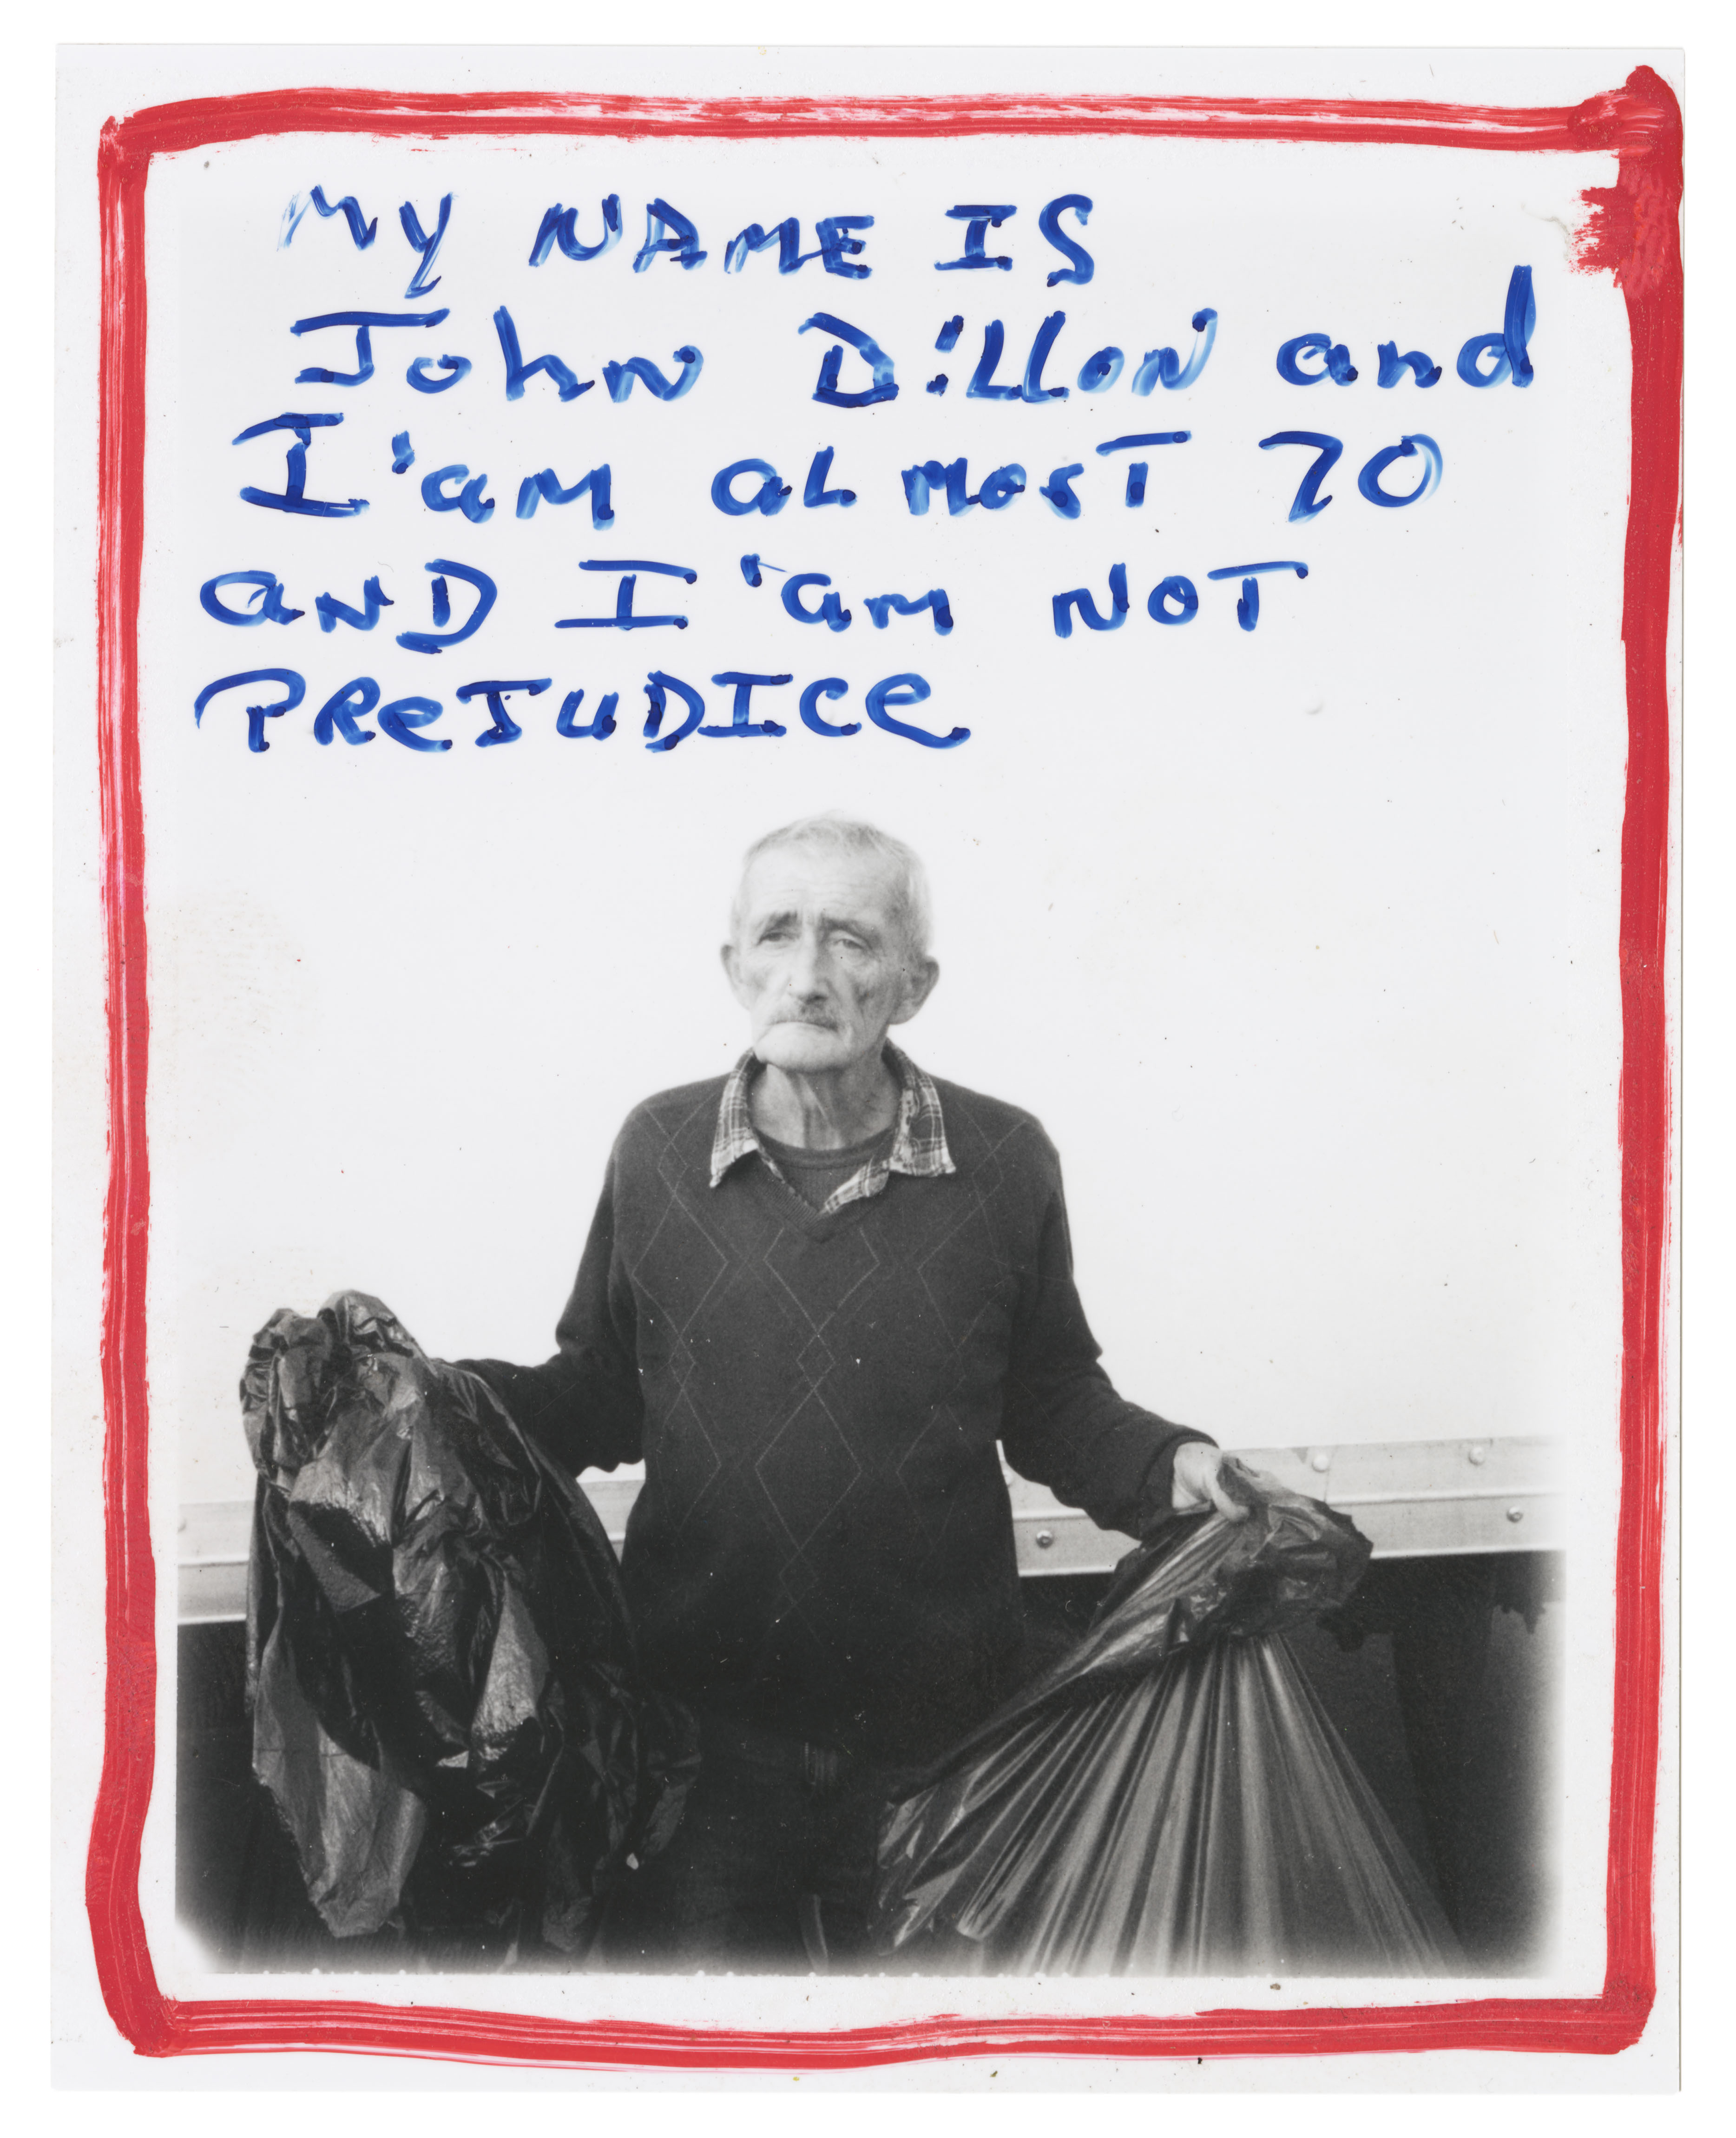 My NAME IS
John DiLLoN and
I'am aLmosT 70
aND I'am NOT
PReJUDICe